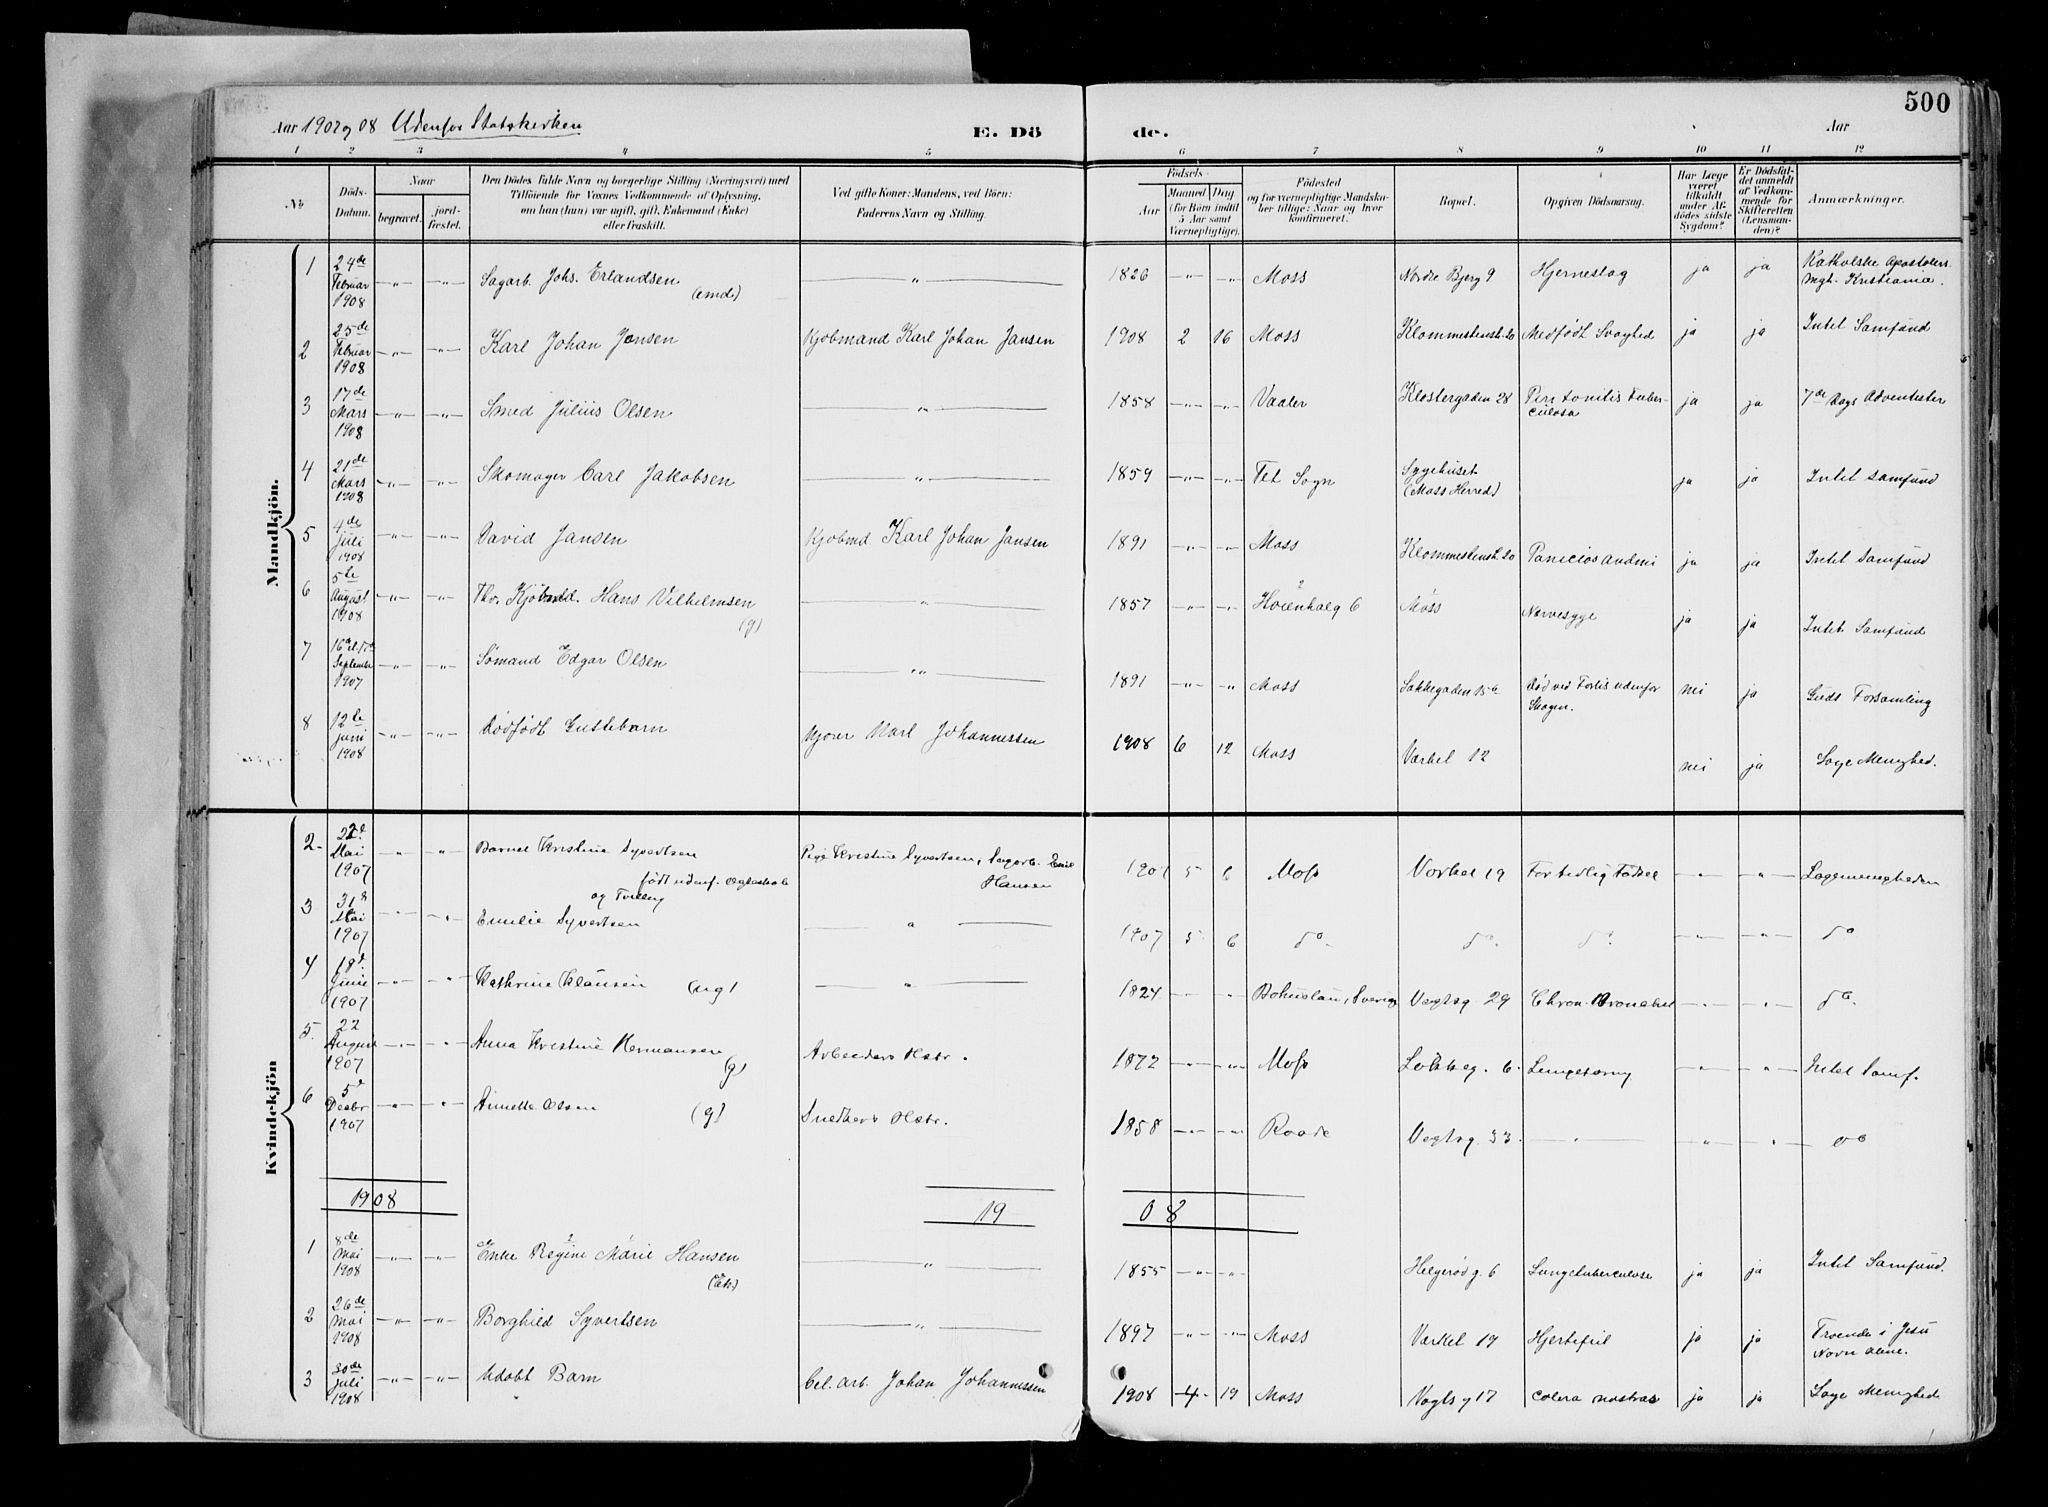 500
Aar 1907 og 08 Udenfor Statskirken E. Dö de. Aar
1 2 3 4 5 6 7 8 9 10 11 12
№
Döds-Datum.
Naar
begravet.
jord-fæstet.
Den Dödes fulde Navn og borgerlige Stilling (Næringsvei) med
Tilföiende for Voxnes Vedkommende af Oplysning,
om han (hun) var ugift, gift, Enkemand (Enke)
eller fraskilt.
Ved gifte Koner: Mandens, ved Börn:
Faderens Navn og Stilling.
Födsels-
Aar
Maaned Dag
(for Börn indtil
5 Aar samt
Værnepligtige).
Födested
og for værnepligtige Mandska-
ber tillige: Naar og hvor
konfirmeret.
Bopæl.
Opgiven Dödsaarsag.
Har Læge
været
tilkaldt
under Af-
dödes sidste
Sygdom?
Er Dödsfal-
det anmeldt
af Vedkom-
mende for
Skifteretten
(Lensman-
den)?
Anmærkninger.
Mandkjön.
1 24de Februar 1908 -"- -"- Sagarb. Johs. Erlandsen (emd) " 1826 -"- -"- Moss Nordre Bjerg 9 Hjerneslag ja ja Katholske Apostolers Mgh. Kristiania.
2 25de Februar 1908 -"- -"- Karl Johan Jansen Kjøbmand Karl Johan Jansen 1908 2 16 Moss Klommestenst. 20 Medfødt Svaghed ja ja Intet Samfund
3 17de Mars 1908 -"- -"- Smed Julius Olsen " 1858 -"- -"- Vaaler Klostergaden 28 Peritonitis Tuberculosa ja ja 7de Dags Adventister
4 21de Mars 1908 -"- -"- Skomager Carl Jakobsen " 1859 -"- -"- Fet Sogn Sygehuset (Moss Herred) ja ja Intet Samfund
5 4de juli 1908 -"- -"- David Jansen Kjøbmd. Karl Johan Jansen 1891 -"- -"- Moss Klommestenst. 20 ja ja Intet Samfund
6 5te August 1908 -"- -"- Fhv. Kjøbmd. Hans Vilhelmsen (g) " 1857 -"- -"- Høienhalg 6 Moss Nervesyge ja ja Intet Samfund
7 September 1907 -"- -"- Sømand Edgar Olsen " 1891 -"- -"- Moss Sakkegaden 15 b Død ved Forlis udenfor Skagen. nei ja Guds Forsamling
8 12te juni 1908 -"- -"- Dødfødt Guttebarn Kjører Karl Johannessen 1908 6 12 Moss Værket 12 nei ja Lage Menighed.
Kvindekjön
2 Mai 1907 " " Barnet Kristine Syvertsen født udenf. Ægteskab og Tvilling Pige Kristine Syvertsen, Sagarb. Emil Hansen 1907 5 6 Moss Værket 19 For tidlig Fødsel " " Lagemenigheden
3 31s Mai 1907 " " Emilie Syvertsen " 1907 5 6 do do do " " do
4 18d Juni 1907 " " Kathrine Klausen (ug) " 1824 " " Bohuslän, Sverig Vogtsg. 29 Chron. Bronchit " " do
5. 22 August 1907 " " Anna Kristine Hermansen (g) Arbeiders Hstr. 1872 " " Moss 6 " " Intet Samf.
6 5d Decbr 1907 " " Annette Olsen (g) Snedkers Hstr. 1858 " " Raade Vogtsg. 33 " " " do
1908 19 08
1 8de Mai 1908 -"- -"- Enke Regine Marie Hansen (Ek) " 1855 -"- -"- Helgerødg. 6 Lungetuberculose ja ja Intet Samfund.
2 26de Mai 1908 -"- -"- Borghild Syvertsen " 1897 -"- -"- Moss Værket 19 Hjertefeil ja ja Troende i Jesu Navn alene.
3 30de juli 1908 -"- -"- Udøbt Barn Cel. arb. Johan Johannessen 1908 4 19 Moss Vogts g 17 Colera nostras ja ja Lage Menighed